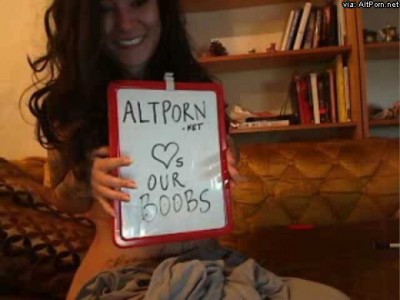 via: AltPorn.net
ALTPORN
.NET
♡s
OUR
BOOBS